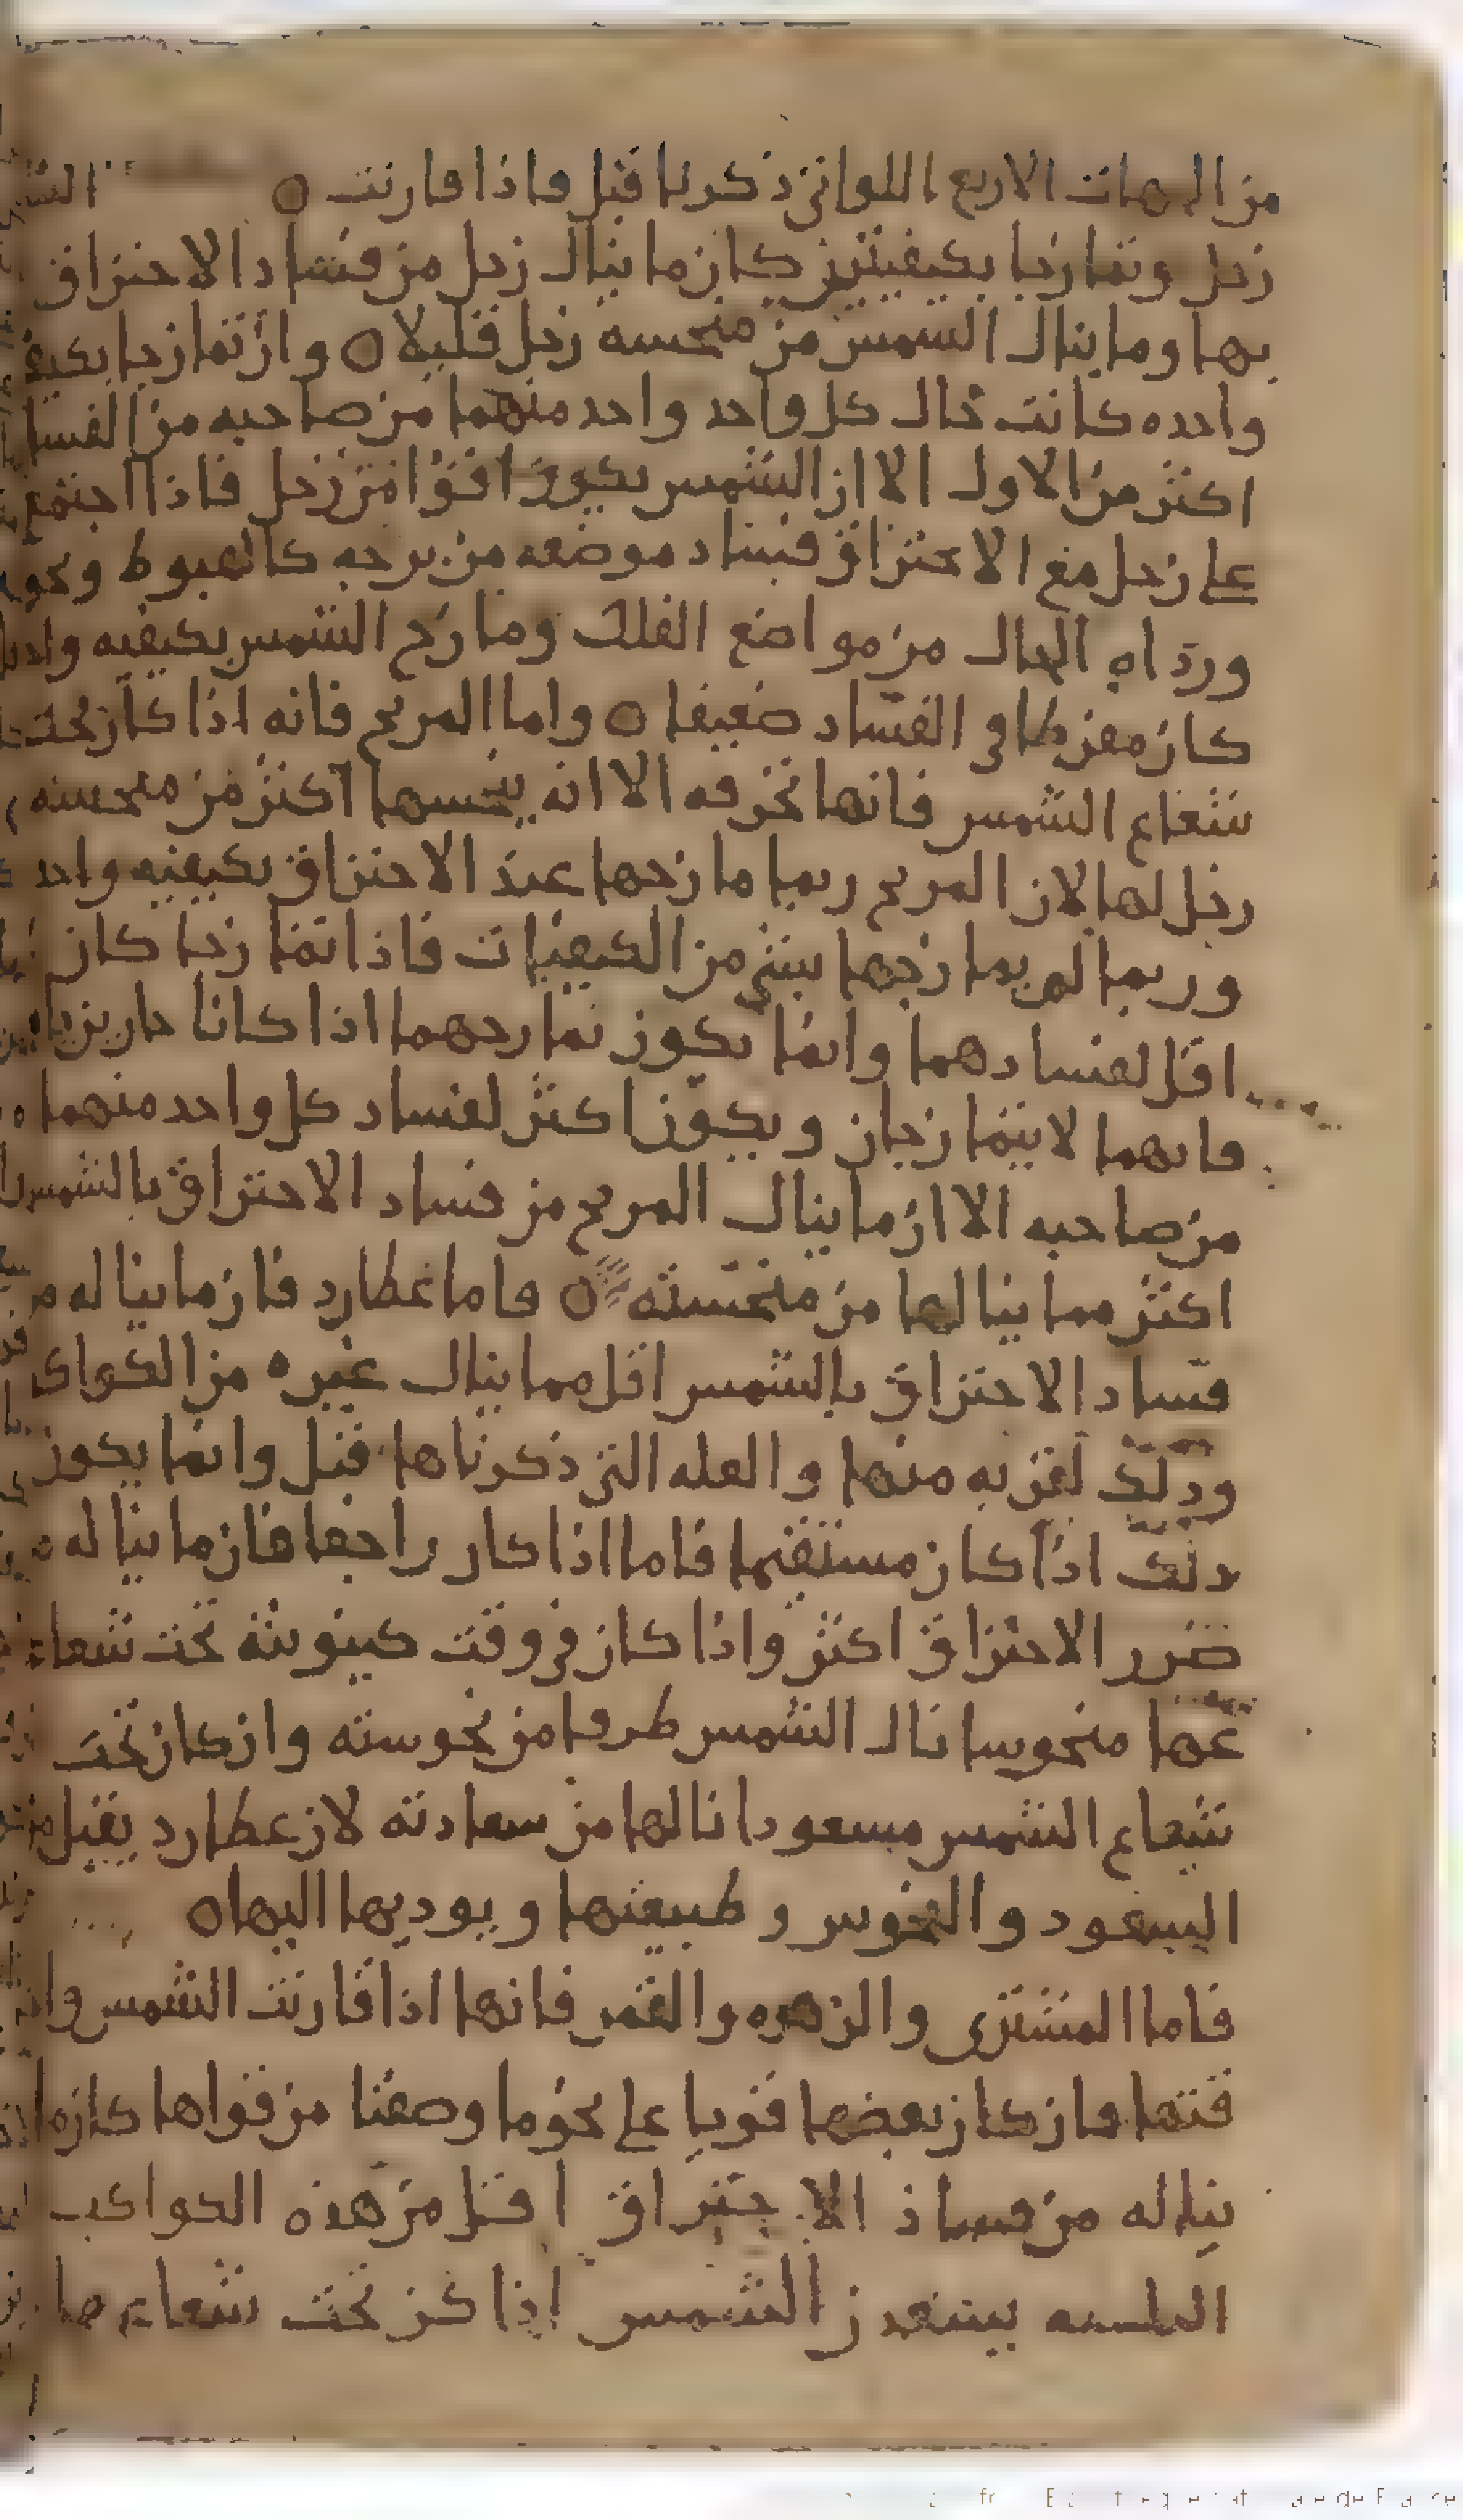 من الجهات الاربع اللواتى ذكرنا قبل فاذا قارنت ه الشمس
زحل وتمازجا بكيفيتين كان ما ينال زحل من فساد الاحتراق
بها وما ينال الشمس من منحسه زحل قليلا ه وان تمازجا بكيفيه
واحده كانت حال كل واحد واحد منهما من صاحبه من الفساد
اكثر من الاول الا ان الشمس يكون اقوا من زحل فاذا اجتمع
على زحل مع الاحتراق فساد موضعه من برجه كالهبوط ونحوه
ورداه الحال من مواضع الفلك ومازج الشمس بكيفيه واحده
كان مفرطا فى الفساد ضعيفا ه واما المريخ فانه اذا كان تحت
شعاع الشمس فانها تحرقه الا انه ينحسها اكثر من منحسه
زحل لها لان المريخ ربما مازجها عند الاحتراق بكيفيه واحده
وربما لم يمازجها بشى من الكيفيات فاذا تمازجا كان
اقل لفسادهما وانما يكون تمازجهما اذا كانا حارين يابسين
فانهما لا يتمازجان ويكون اكثر لفساد كل واحد منهما
من صاحبه الا ان ما ينال المريخ من فساد الاحتراق بالشمس
اكثر مما ينالها من منحسته ه فاما عطارد فان ما يناله من
فساد الاحتراق بالشمس اقل مما ينال غيره من الكواكب
وذلك لقربه منها والعله التى ذكرناها قبل وانما يكون
ذلك اذا كان مستقيما فاما اذا كان راجعا فان ما يناله من
ضرر الاحتراق اكثر واذا كان فى وقت كينونته تحت شعاعها
منحوسا نال الشمس طرفا من نحوسته وان كان تحت
شعاع الشمس مسعودا نالها من سعادته لان عطارد يقبل من
السعود والنحوس وطبيعتها ويوديها اليها ه
فاما المشترى والزهره والقمر فانها اذا قارنت الشمس واحرقتها
فان كان بعضها قويا على نحو ما وصفنا من قواها كان ما
يناله من فساد الاحتراق اقل من هذه الكواكب
يسعدن الشمس اذا كن تحت شعاعها